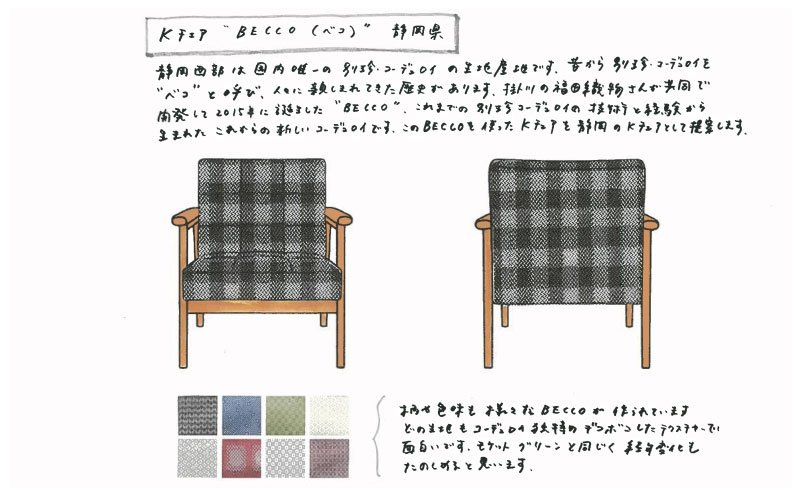 Kチェア "BECCO（ベコ）" 静岡県
静岡西部は国内唯一の別珍・コーデュロイの生地産地です。昔から別珍・コーデュロイを
"ベコ"と呼び、人々に親しまれてきた歴史があります。掛川の福田織物さんが共同で
開発して2015年に誕生した"BECCO"。これまでの別珍コーデュロイの技術と経験から
生まれたこれからの新しいコーデュロイです。このBECCOを使ったKチェアを静岡のKチェアとして提案します。
柄や色味も様々なBECCOが作られています
どの生地もコーデュロイ独特のデコボコしたテクスチャーで
面白いです。モケットグリーンと同じく経年変化も
たのしめると思います。